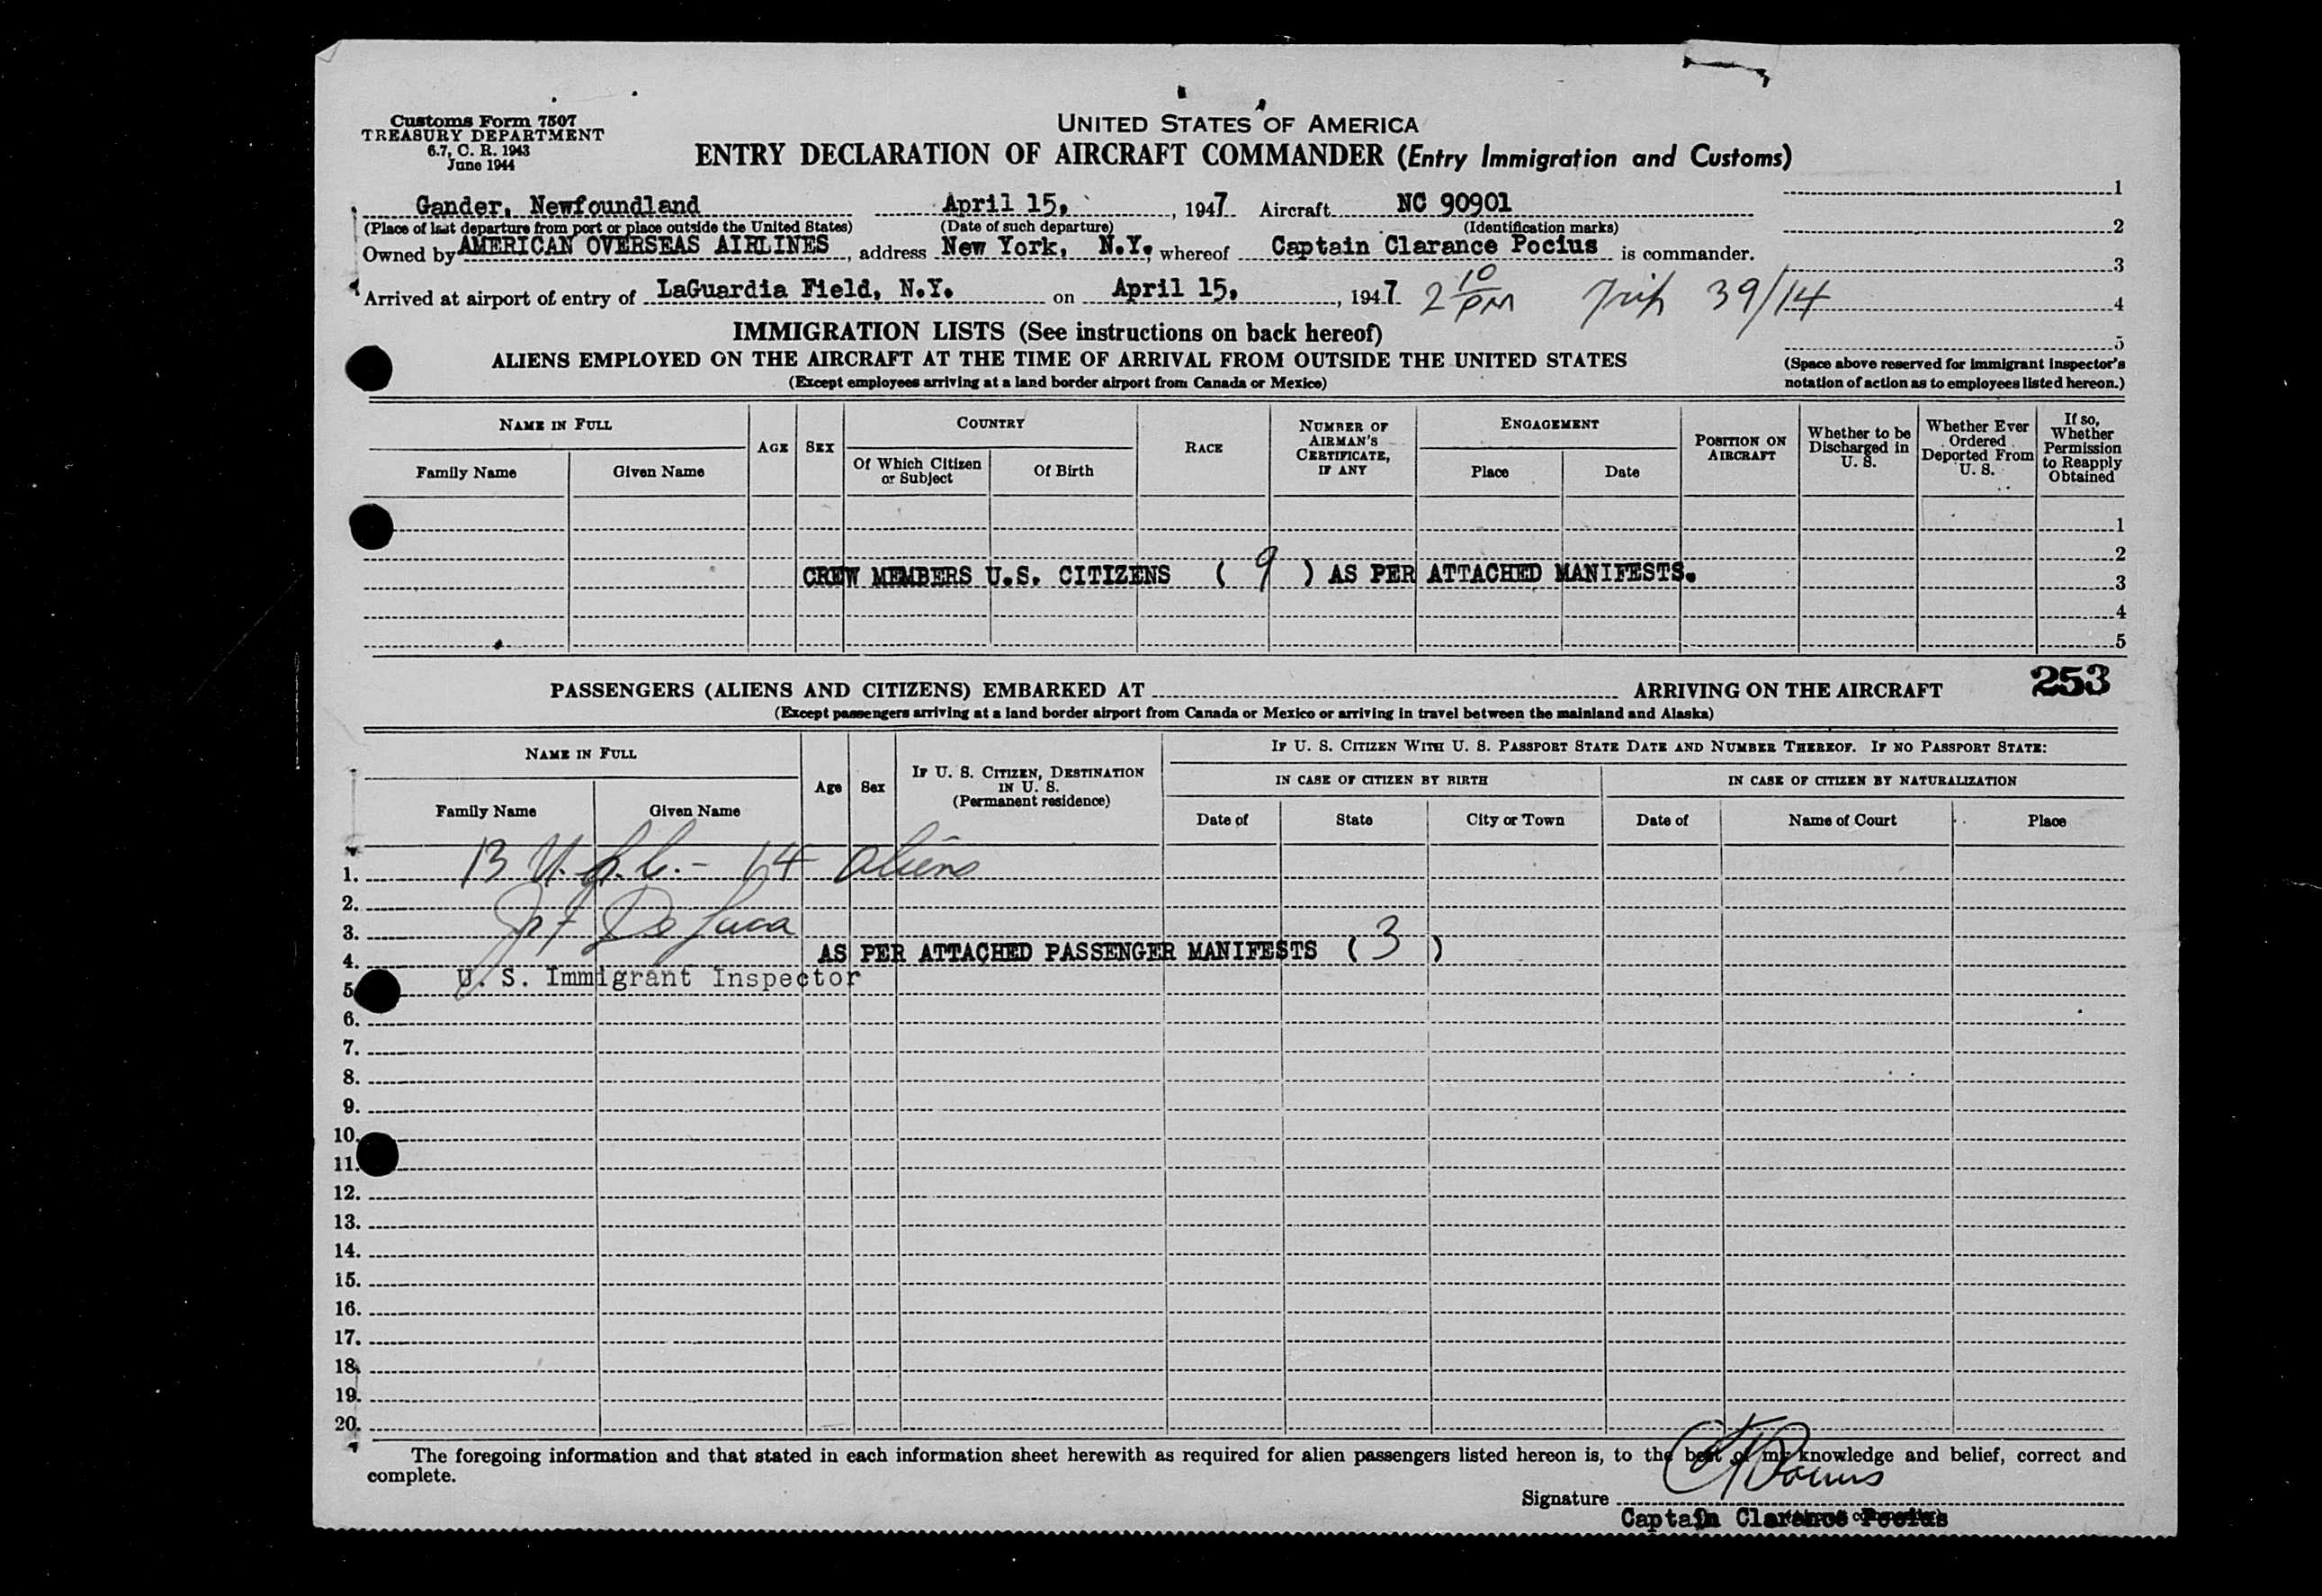 Customs Form 7507
TREASURY DEPARTMENT
6.7, C. R. 1943
June 1944
UNITED STATES OF AMERICA
ENTRY DECLARATION OF AIRCRAFT COMMANDER (Entry Immigration and Customs)
Gander, Newfoundland April 15, , 1947 Aircraft NC 90901
(Place of last departure from port or place outside the United States) (Date of such departure) (Identification marks)
Owned by AMERICAN OVERSEAS AIRLINES, address New York, N.Y. whereof Captain Clarance Pocius is commander.
Arrived at airport of entry of LaGuardia Field, N.Y. on April 15, , 1947 2 10 PM Trip 39/14
1
2
3
4
5
(Space above reserved for immigrant inspector's
notation of action as to employees listed hereon.)
IMMIGRATION LISTS (See instructions on back hereof)
ALIENS EMPLOYED ON THE AIRCRAFT AT THE TIME OF ARRIVAL FROM OUTSIDE THE UNITED STATES
(Except employees arriving at a land border airport from Canada or Mexico)
NAME IN FULL
Family Name Given Name
AGE SEX
COUNTRY
Of Which Citizen or Subject Of Birth
RACE
NUMBER OF AIRMAN'S CERTIFICATE, IF ANY
ENGAGEMENT
Place Date
POSITION ON AIRCRAFT
Whether to be Discharged in U. S.
Whether Ever Ordered Deported From U. S.
If so, Whether Permission to Reapply Obtained
1
2
CREW MEMBERS U.S. CITIZENS ( 9 ) AS PER ATTACHED MANIFESTS. 3
4
5
253
PASSENGERS (ALIENS AND CITIZENS) EMBARKED AT ARRIVING ON THE AIRCRAFT
(Except passengers arriving at a land border airport from Canada or Mexico or arriving in travel between the mainland and Alaska)
NAME IN FULL
Family Name Given Name
Age Sex
IF U. S. CITIZEN, DESTINATION IN U. S. (Permanent residence)
IF U. S. CITIZEN WITH U. S. PASSPORT STATE DATE AND NUMBER THEREOF. IF NO PASSPORT STATE:
IN CASE OF CITIZEN BY BIRTH IN CASE OF CITIZEN BY NATURALIZATION
Date of State City or Town Date of Name of Court Place
1. 13 U.S.C. - 14 aliens
2.
3. De Luca
4. AS PER ATTACHED PASSENGER MANIFESTS ( 3 )
5. U. S. Immigrant Inspector
6.
7.
8.
9.
10.
11.
12.
13.
14.
15.
16.
17.
18.
19.
20.
The foregoing information and that stated in each information sheet herewith as required for alien passengers listed hereon is, to the best of my knowledge and belief, correct and
complete.
Signature C A Pocius
Captain Clarance Pocius